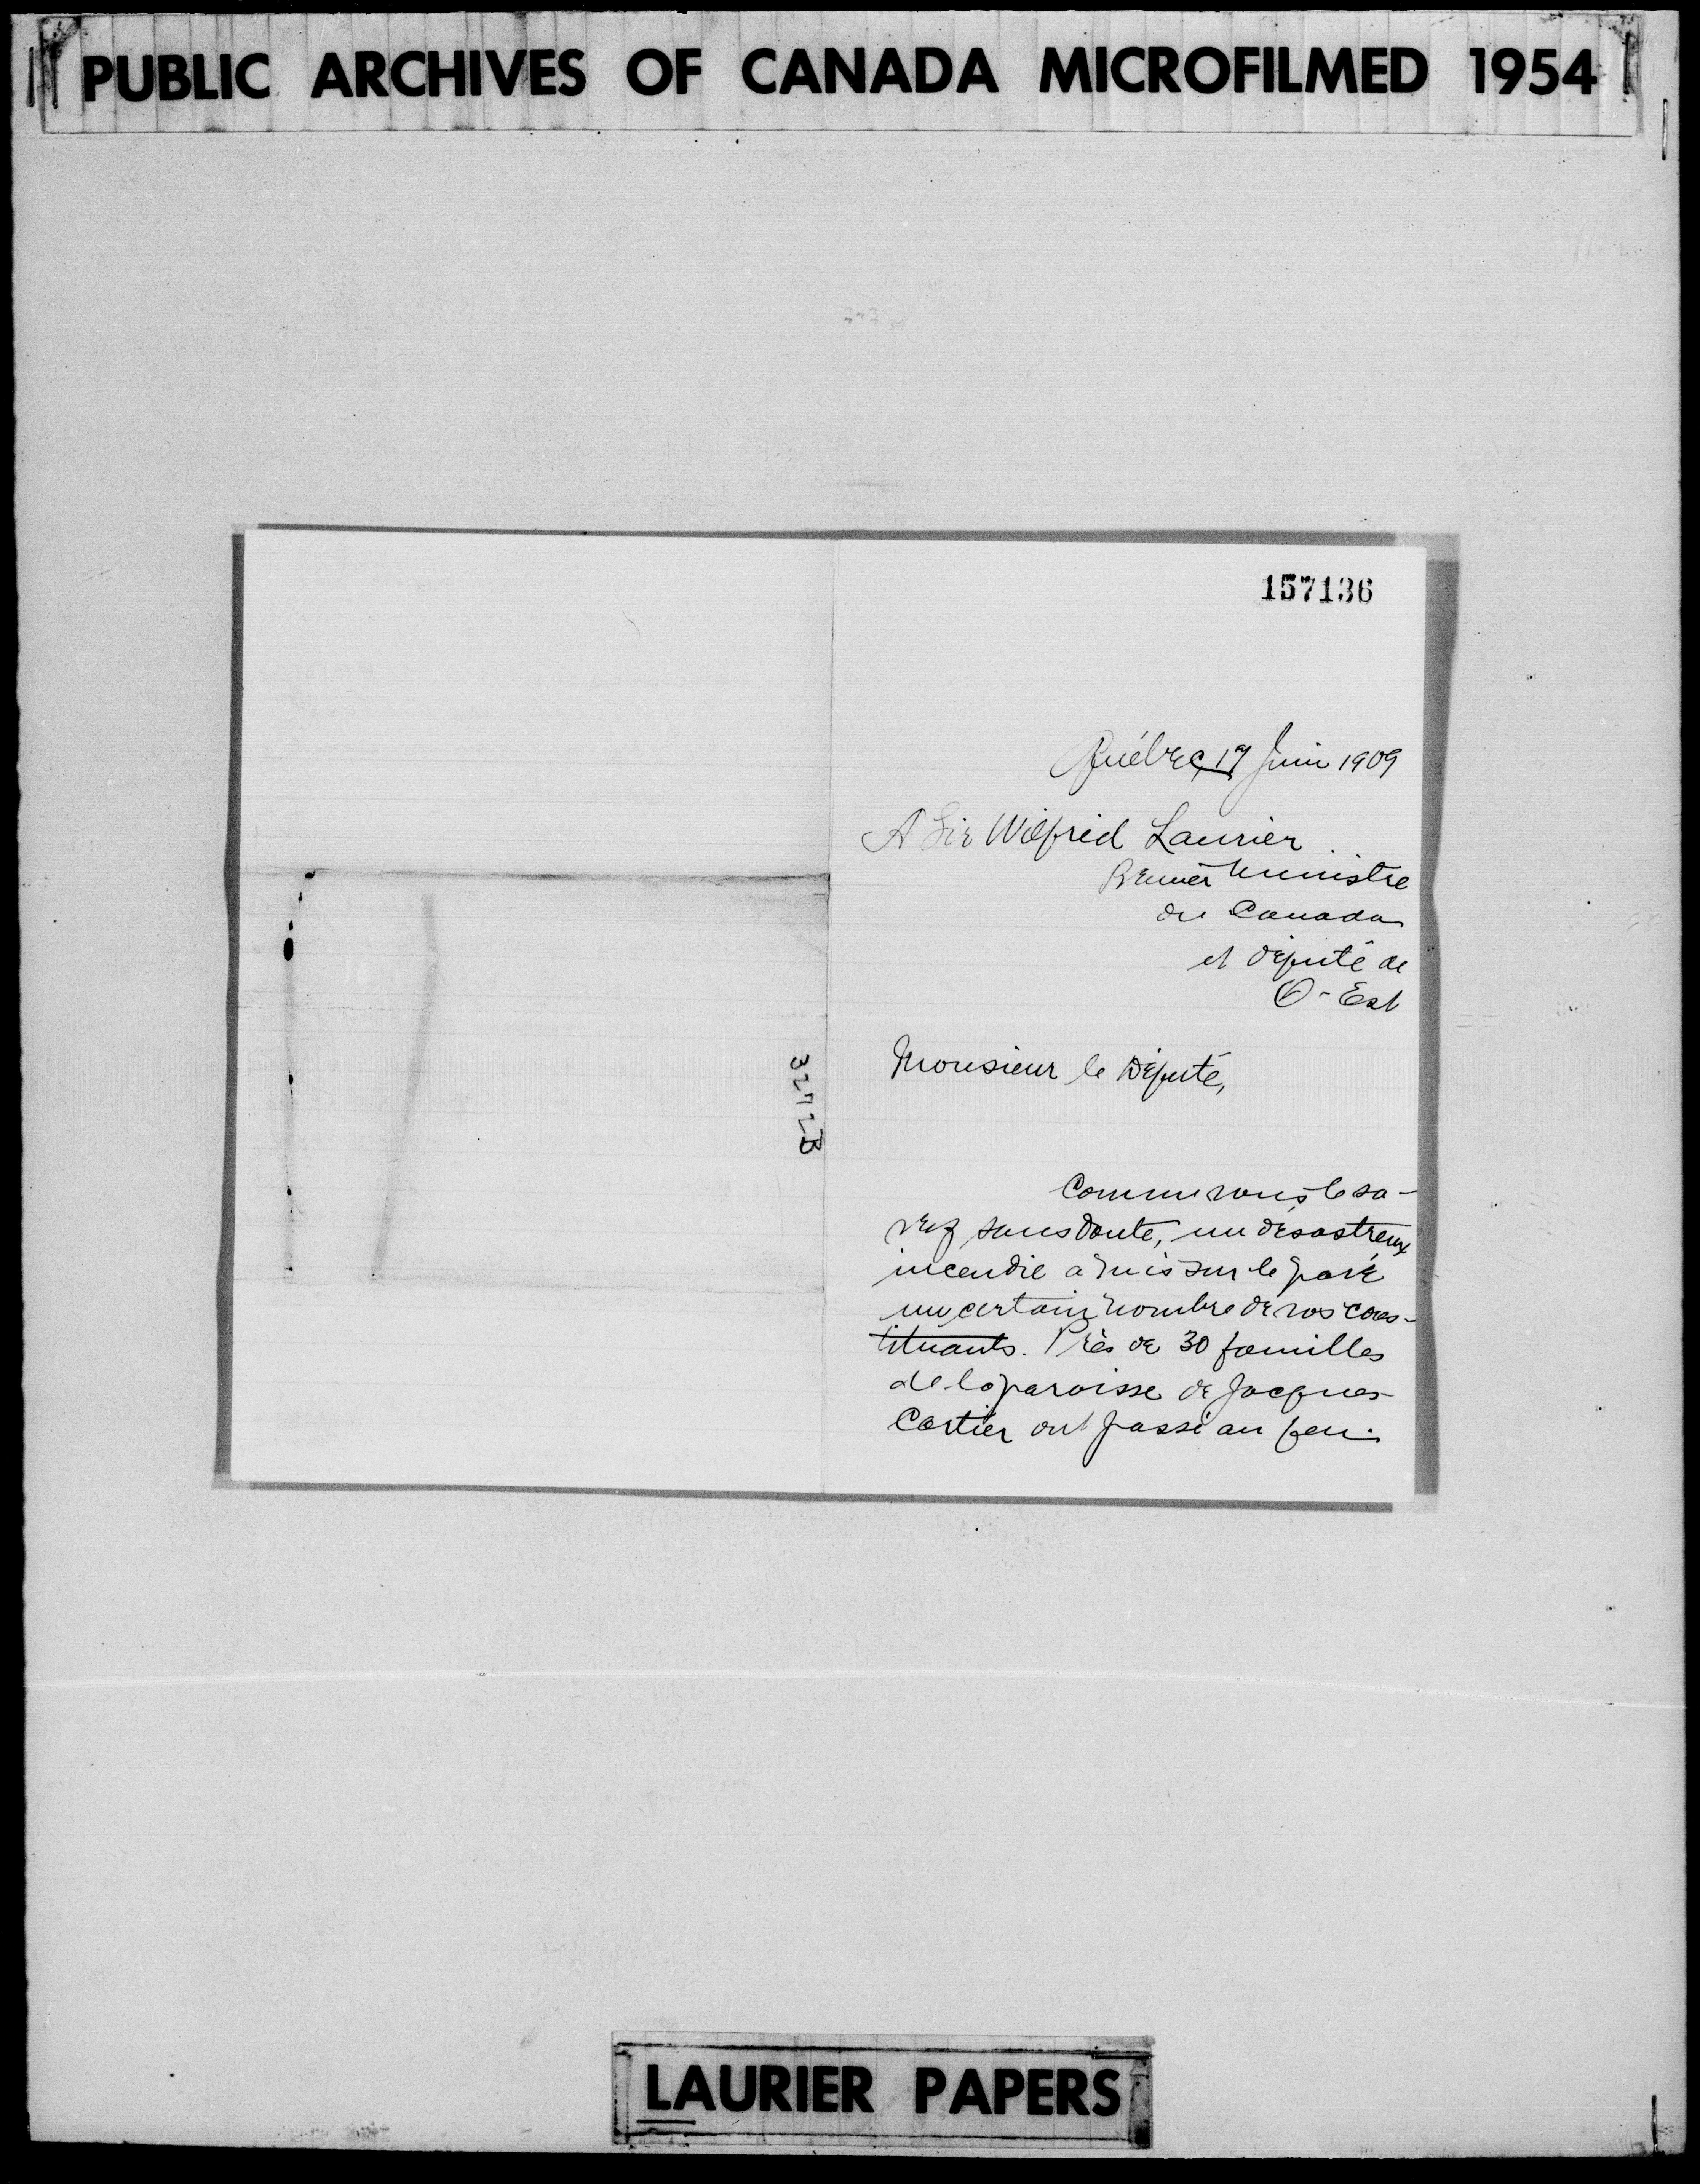 PUBLIC ARCHIVES OF CANADA MICROFILMED 1954
157136
Québec, 17 Juin 1909
A Sir Wilfrid Laurier
Premier Ministre
du Canada
et député de
Q-Est
Monsieur le Député,
Comme vous le sa-
vez sans doute, un désastreux
incendie a mis sur le pavé
un certain nombre de vos cons-
tituants. Près de 30 familles
de la paroisse de Jacques-
Cartier ont passé au feu.
LAURIER PAPERS